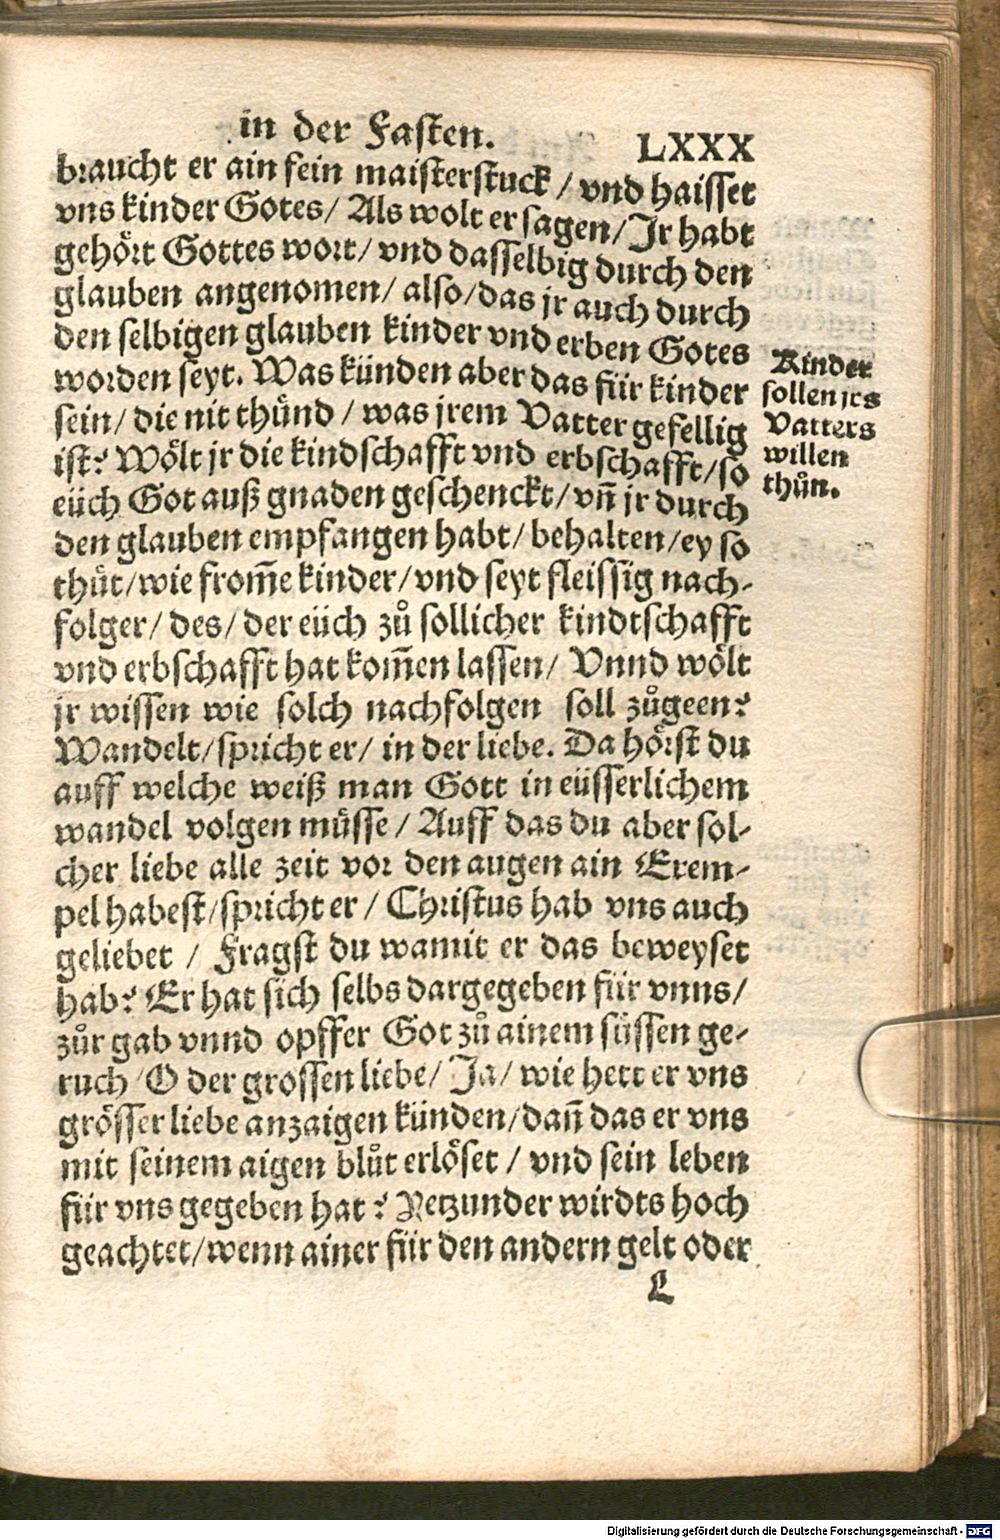 in der Fasten. LXXX
braucht er ain fein maisterstuck / vnd haisset
vns kinder Gotes / Als wolt er sagen / Jr habt
gehört Gottes wort / vnd dasselbig durch den
glauben angenomen / also / das jr auch durch
den selbigen glauben kinder vnd erben Gotes
worden seyt. Was künden aber das für kinder
sein / die nit thůnd / was jrem Vatter gefellig
ist? Wölt jr die kindschafft vnd erbschafft / so
eüch Got auß gnaden geschenckt / vn̄ jr durch
den glauben empfangen habt / behalten / ey so
thůt / wie from̄e kinder / vnd seyt fleissig nach-
folger / des / der eüch zů sollicher kindtschafft
vnd erbschafft hat kom̄en lassen / Vnnd wölt
jr wissen wie solch nachfolgen soll zůgeen?
Wandelt / spricht er / in der liebe. Da hörst du
auff welche weiß man Gott in eüsserlichem
wandel volgen müsse / Auff das du aber sol-
cher liebe alle zeit vor den augen ain Exem-
pel habest / spricht er / Christus hab vns auch
geliebet / Fragst du wamit er das beweyset
hab? Er hat sich selbs dargegeben für vnns /
zůr gab vnnd opffer Got zů ainem süssen ge-
ruch / O der grossen liebe / Ja / wie hett er vns
grösser liebe anzaigen künden / dan̄ das er vns
mit seinem aigen blůt erlöset / vnd sein leben
für vns gegeben hat? Yetzunder wirdts hoch
geachtet / wenn ainer für den andern gelt oder
L
Kinder
sollen jrs
Vatters
willen
thůn.
Digitalisierung gefördert durch die Deutsche Forschungsgemeinschaft - DFG